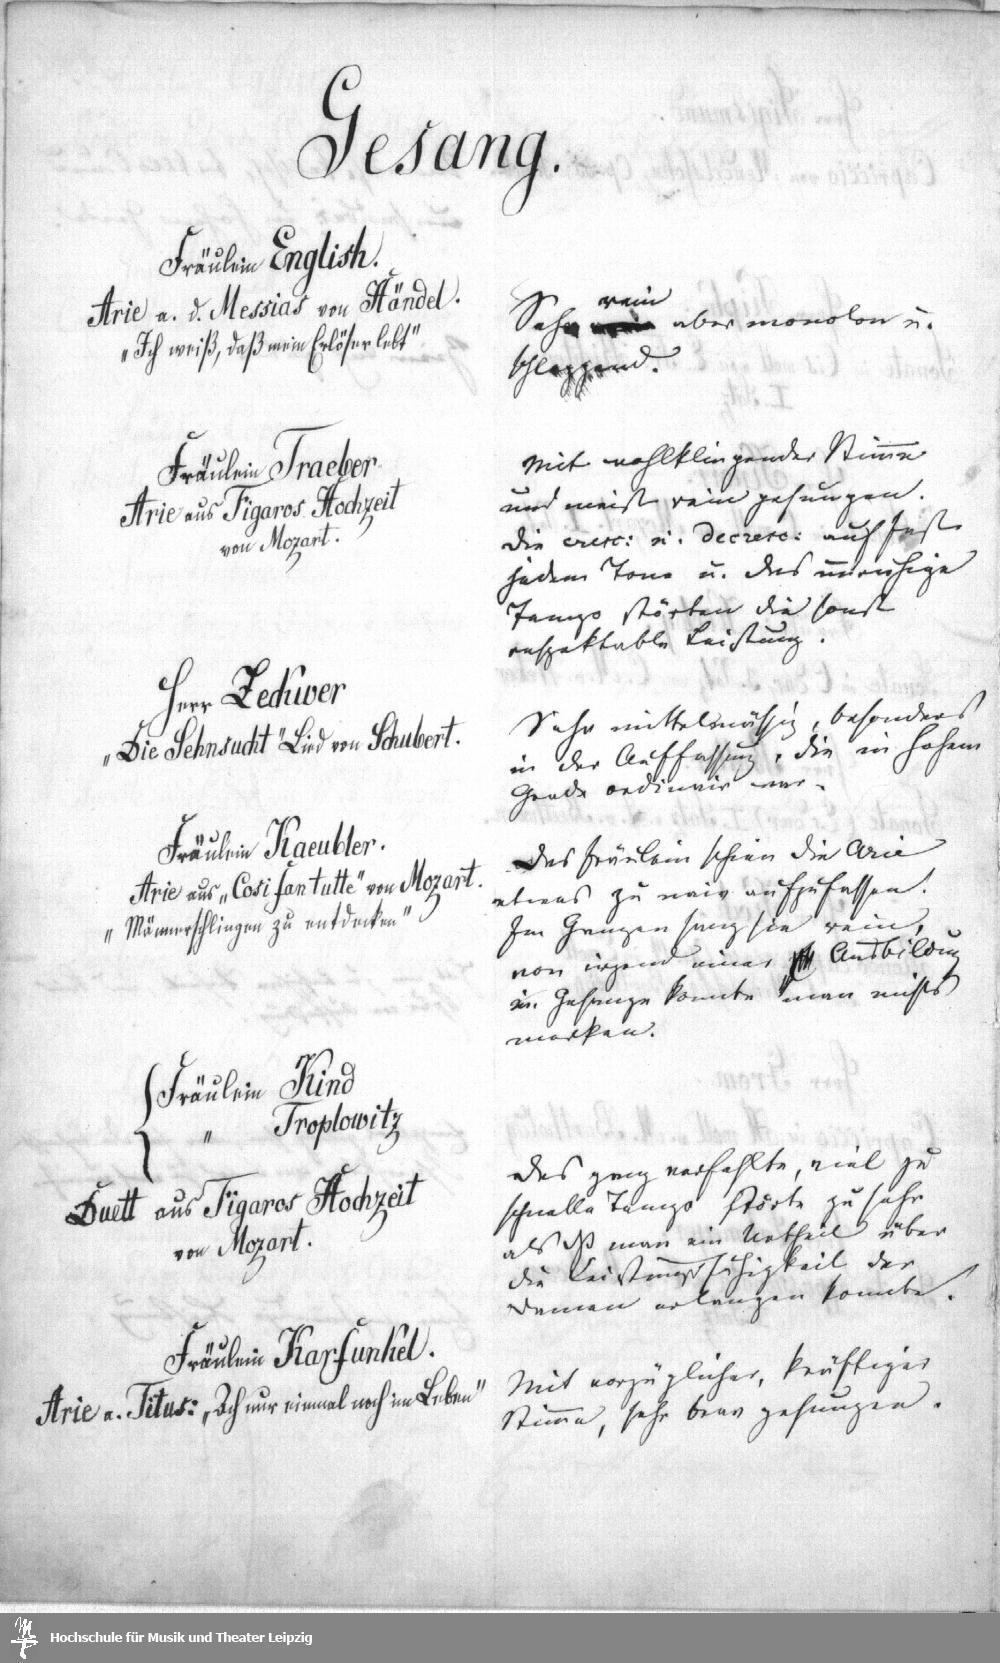 Gesang.
Fräulein English.
Arie a. d. Messias von Händel.
„Ich weiß, daß mein Erlöser lebt"
rein
Sehr aber monoton u.
schleppend.
Fräulein Traeber
Arie aus Figaros Hochzeit
von Mozart.
Mit wohlklingender Stimme
und meist rein gesungen.
Die cresc: u. decresc: auf fast
jedem Tone u. das unruhige
Tempo störten die sonst
respektable Leistung.
Herr Zeckwer
„Die Sehnsucht" Lied von Schubert.
Sehr mittelmäßig, besonders
in der Auffassung, die in hohem
Grade ordinair war.
Fräulein Kaeubler.
Arie aus „Cosi fan tutte" von Mozart.
„Männerschlingen zu entdecken"
Das Fräulein schien die Arie
etwas zu naiv aufzufassen.
Im Ganzen sang sie rein,
von irgend einer Ausbildung
im Gesange konnte man nichts
merken.
Fräulein Kind
" Troplowitz
Duett aus Figaros Hochzeit
von Mozart.
Das ganz verfehlte, viel zu
schnelle Tempo störte zu sehr
als daß man ein Urtheil über
die Leistungsfähigkeit der
Damen erlangen konnte.
Fräulein Karfunkel.
Arie a. Titus: „Ach nur einmal noch im Leben"
Mit vorzüglicher, kräftiger
Stimme, sehr brav gesungen.
Hochschule für Musik und Theater Leipzig